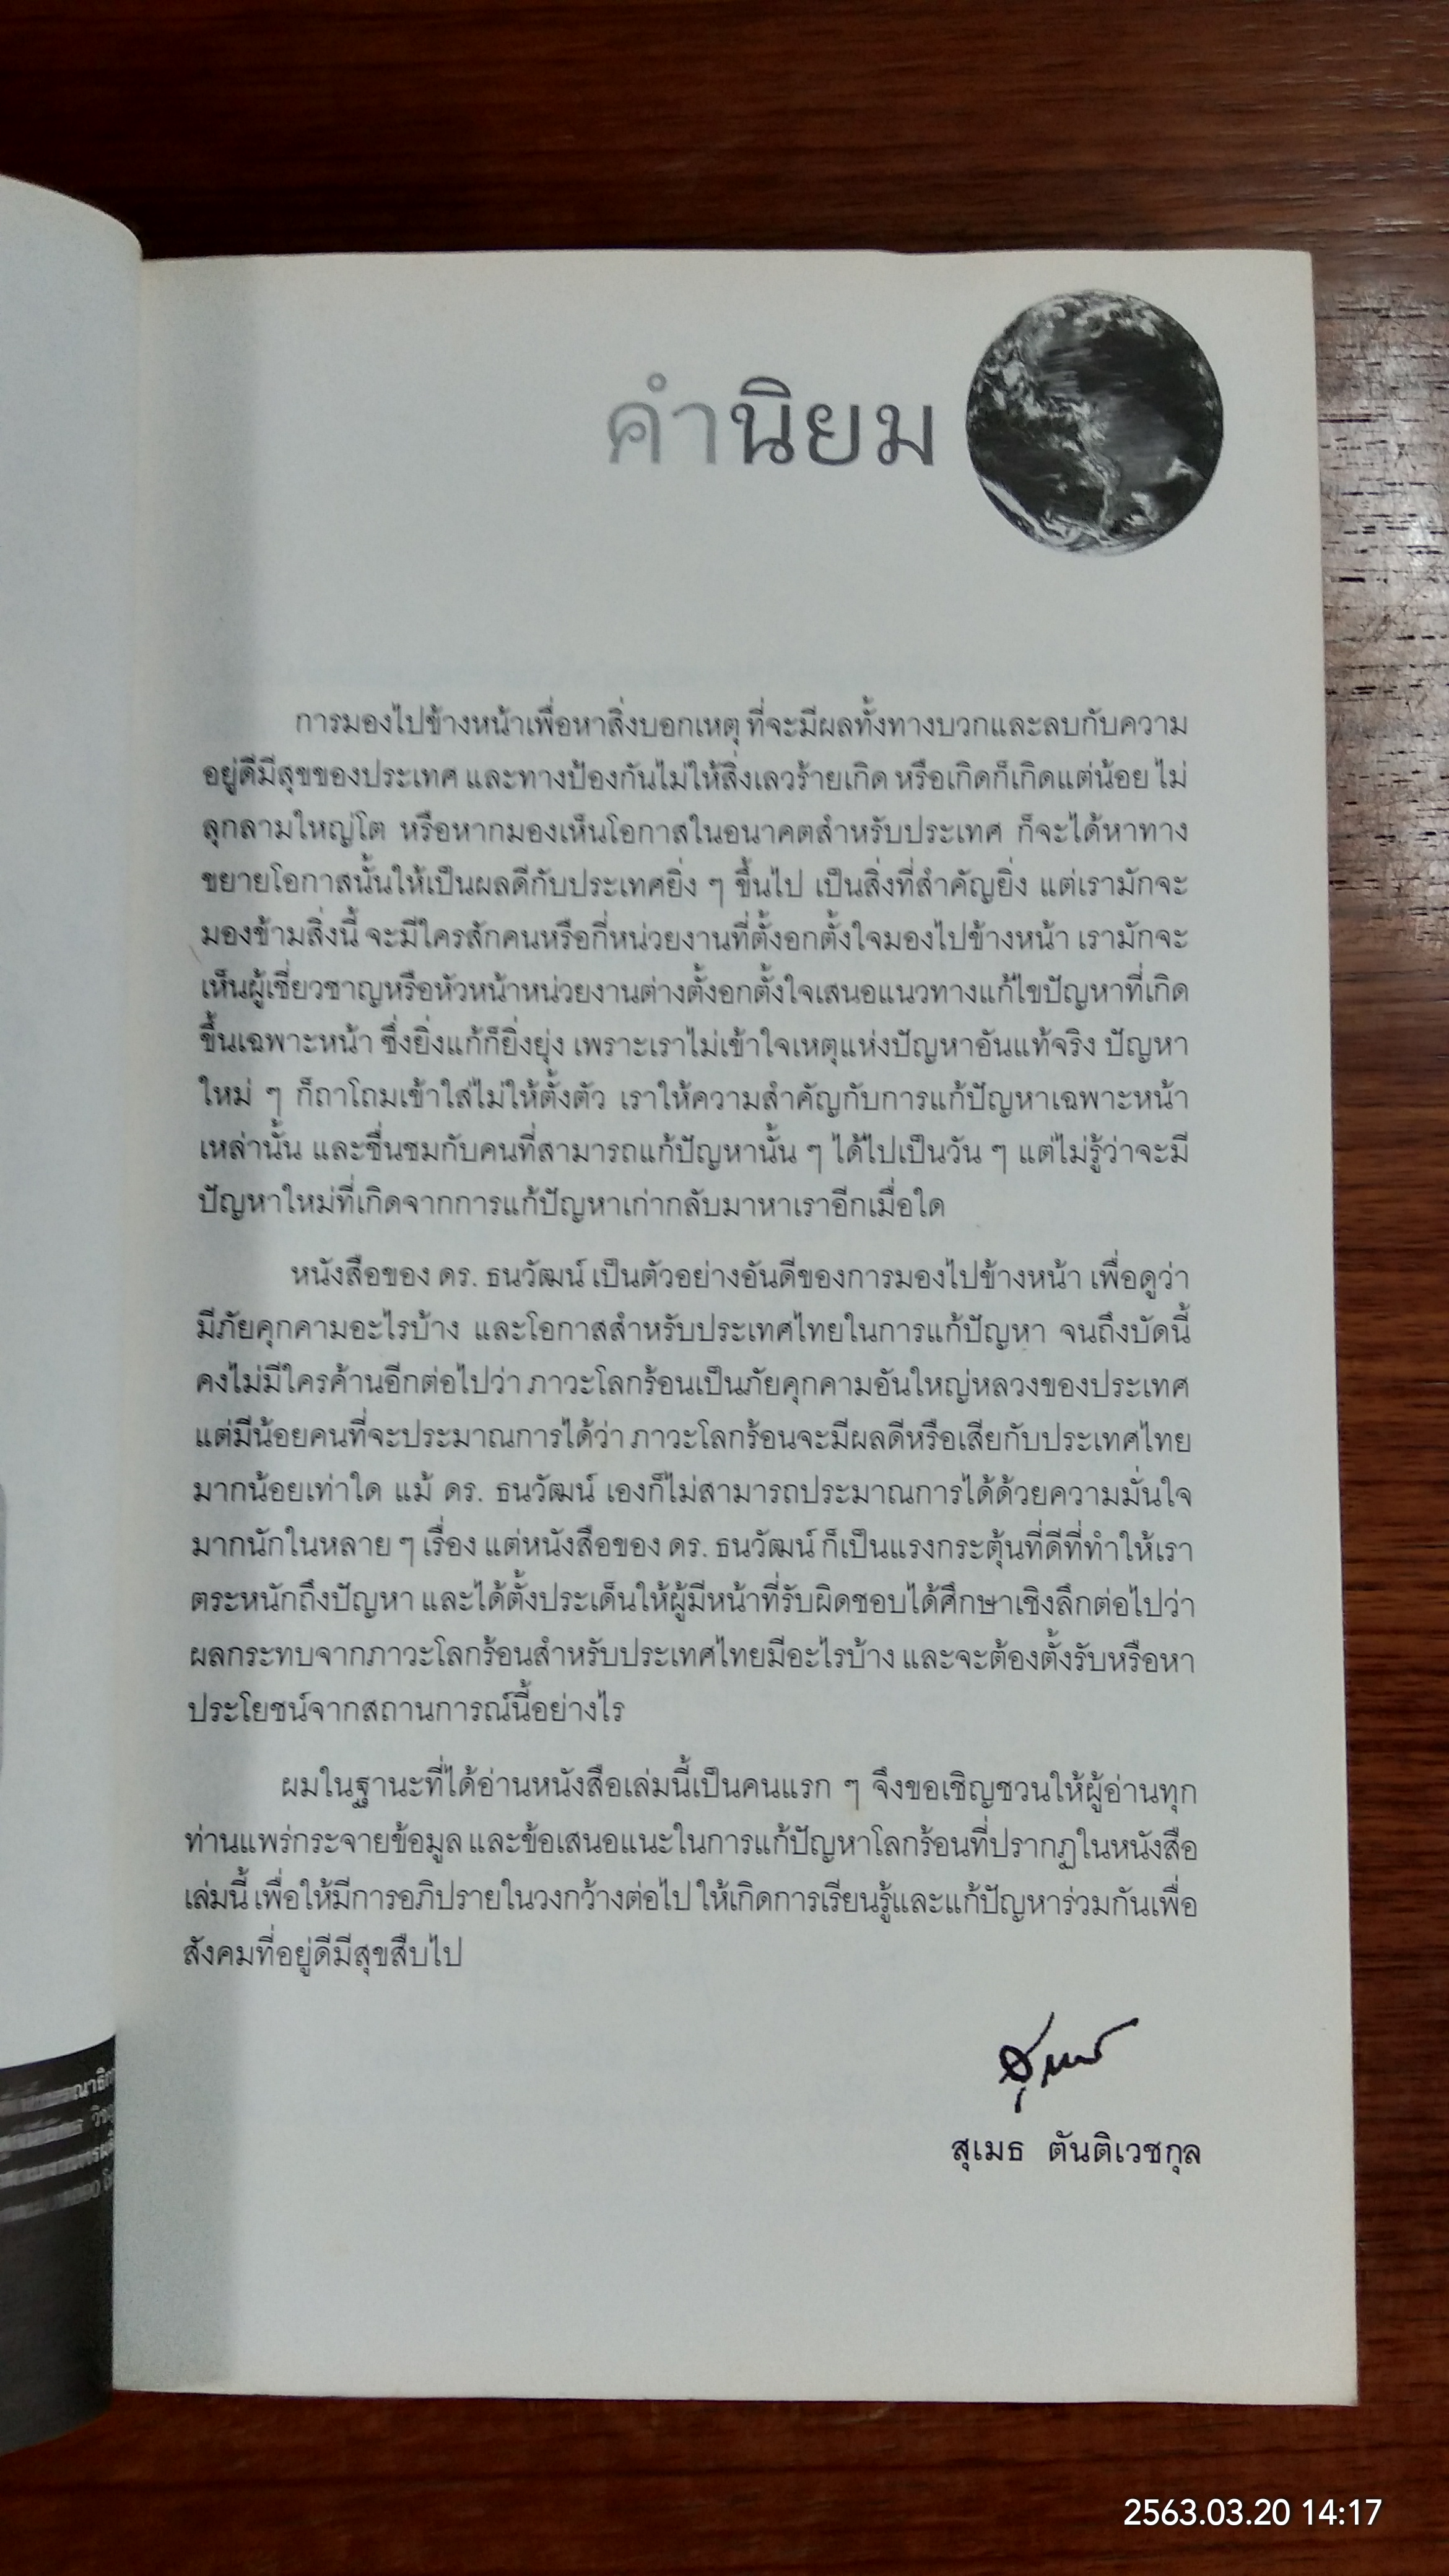 คำนิยม
การมองไปข้างหน้าเพื่อหาสิ่งบอกเหตุ ที่จะมีผลทั้งทางบวกและลบกับความ
อยู่ดีมีสุขของประเทศ และทางป้องกันไม่ให้สิ่งเลวร้ายเกิด หรือเกิดก็เกิดแต่น้อย ไม่
ลุกลามใหญ่โต หรือหากมองเห็นโอกาสในอนาคตสำหรับประเทศ ก็จะได้หาทาง
ขยายโอกาสนั้นให้เป็นผลดีกับประเทศยิ่ง ๆ ขึ้นไป เป็นสิ่งที่สำคัญยิ่ง แต่เรามักจะ
มองข้ามสิ่งนี้ จะมีใครสักคนหรือกี่หน่วยงานที่ตั้งอกตั้งใจมองไปข้างหน้า เรามักจะ
เห็นผู้เชี่ยวชาญหรือหัวหน้าหน่วยงานต่างตั้งอกตั้งใจเสนอแนวทางแก้ไขปัญหาที่เกิด
ขึ้นเฉพาะหน้า ซึ่งยิ่งแก้ก็ยิ่งยุ่ง เพราะเราไม่เข้าใจเหตุแห่งปัญหาอันแท้จริง ปัญหา
ใหม่ ๆ ก็ถาโถมเข้าใส่ไม่ให้ตั้งตัว เราให้ความสำคัญกับการแก้ปัญหาเฉพาะหน้า
เหล่านั้น และชื่นชมกับคนที่สามารถแก้ปัญหานั้น ๆ ได้ไปเป็นวัน ๆ แต่ไม่รู้ว่าจะมี
ปัญหาใหม่ที่เกิดจากการแก้ปัญหาเก่ากลับมาหาเราอีกเมื่อใด
หนังสือของ ดร. ธนวัฒน์ เป็นตัวอย่างอันดีของการมองไปข้างหน้า เพื่อดูว่า
มีภัยคุกคามอะไรบ้าง และโอกาสสำหรับประเทศไทยในการแก้ปัญหา จนถึงบัดนี้
คงไม่มีใครค้านอีกต่อไปว่า ภาวะโลกร้อนเป็นภัยคุกคามอันใหญ่หลวงของประเทศ
แต่มีน้อยคนที่จะประมาณการได้ว่า ภาวะโลกร้อนจะมีผลดีหรือเสียกับประเทศไทย
มากน้อยเท่าใด แม้ ดร. ธนวัฒน์ เองก็ไม่สามารถประมาณการได้ด้วยความมั่นใจ
มากนักในหลาย ๆ เรื่อง แต่หนังสือของ ดร. ธนวัฒน์ ก็เป็นแรงกระตุ้นที่ดีที่ทำให้เรา
ตระหนักถึงปัญหา และได้ตั้งประเด็นให้ผู้มีหน้าที่รับผิดชอบได้ศึกษาเชิงลึกต่อไปว่า
ผลกระทบจากภาวะโลกร้อนสำหรับประเทศไทยมีอะไรบ้าง และจะต้องตั้งรับหรือหา
ประโยชน์จากสถานการณ์นี้อย่างไร
ผมในฐานะที่ได้อ่านหนังสือเล่มนี้เป็นคนแรก ๆ จึงขอเชิญชวนให้ผู้อ่านทุก
ท่านแพร่กระจายข้อมูล และข้อเสนอแนะในการแก้ปัญหาโลกร้อนที่ปรากฏในหนังสือ
เล่มนี้ เพื่อให้มีการอภิปรายในวงกว้างต่อไป ให้เกิดการเรียนรู้และแก้ปัญหาร่วมกันเพื่อ
สังคมที่อยู่ดีมีสุขสืบไป
สุเมธ
สุเมธ ตันติเวชกุล
2563.03.20 14:17